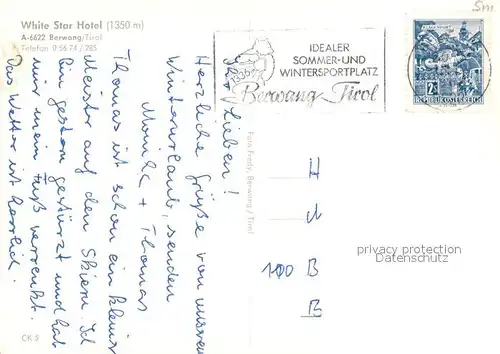 White Star Hotel (1350 m)
A-6622 Berwang/Tirol
Telefon 0 56 74 / 285
IDEALER
SOMMER-UND
WINTERSPORTPLATZ
Berwang Tirol
2S
REPUBLIK ÖSTERREICH
Ihr Lieben!
Herzliche Grüße von unserem
Winterurlaub, senden
Monika + Thomas
Thomas ist schon ein kleiner
Meister auf den Skiern. Ich
bin gestern gestürzt und hab
mir mein Fuß verrenkt.
Das Wetter ist herrlich.
Foto Fredy, Berwang / Tirol
H
100 B
B
privacy protection
Datenschutz
CK 5